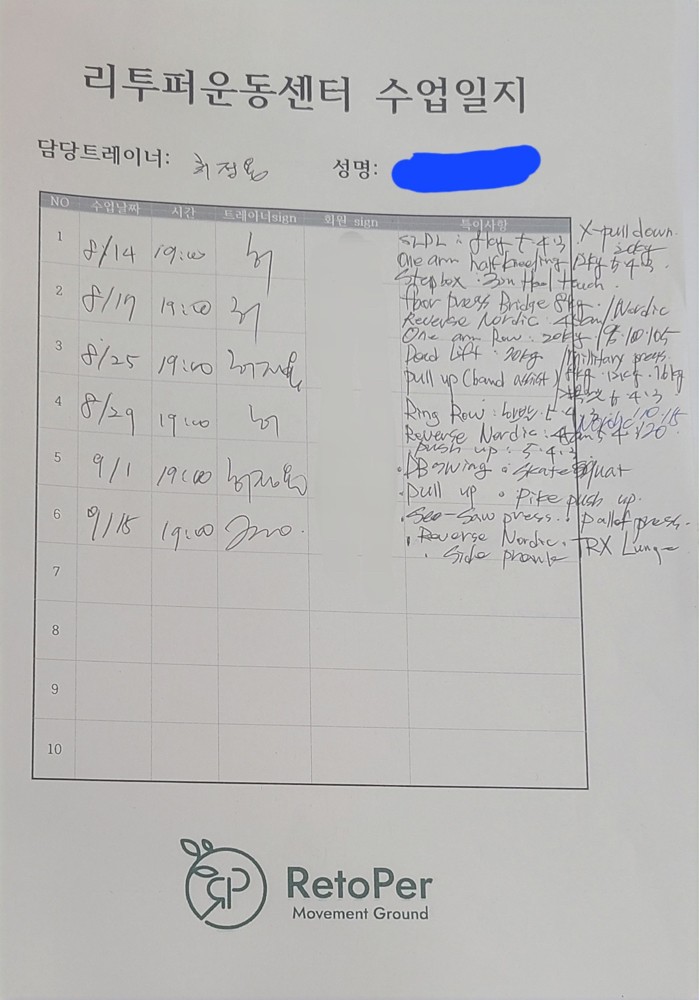 리투퍼운동센터 수업일지
담당트레이너: 성명:
NO 수업날짜 시간 트레이너sign 회원 sign 특이사항
1 8/14 19:00 SLDL : 8kg 5 4 3 X-pull down
One arm half kneeling 12kg 5 4 3. 20kg
Stepbox 30cm Heel touch.
2 8/17 19:00 floor press Bridge 8kg. / Nordic
Reverse Nordic
One arm Row : 20kg / 95 100 105
3 8/25 19:00 Dead Lift : 20kg / military press.
pull up (band assist) 12kg. 16kg
5 4 3
4 8/29 19:00 Ring Row : 5 4 3 Nordic 110. 115
Reverse Nordic : 5 4 120
push up : 5. 4. 3
5 9/1 19:00 · DB swing · skate squat
· pull up · pike push up.
6 9/15 19:00 · See-Saw press. · pallof press.
· Reverse Nordic. · TRX Lunge
· side prank
7
8
9
10
RetoPer
Movement Ground